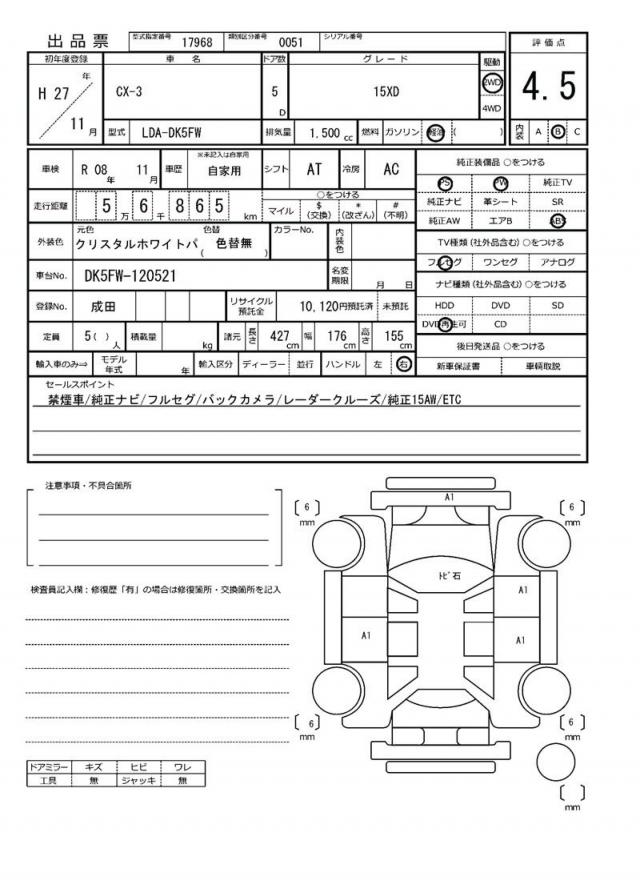 出品票 型式指定番号 17968 類別区分番号 0051 シリアル番号
初年度登録 車名 ドア数 グレード 駆動 評価点
H 27 年 11 月 CX-3 5 D 15XD 2WD 4WD 4.5
型式 LDA-DK5FW 排気量 1,500 cc 燃料 ガソリン 軽油 ( ) 内装 A B C
車検 R 08 年 11 月 車歴 ※未記入は自家用 自家用 シフト AT 冷房 AC
走行距離 5 万 6 千 8 6 5 km ○をつける
マイル $(交換) *(改ざん) #(不明)
外装色 元色 クリスタルホワイトパ 色替 ( 色替無 ) カラーNo. 内装色
車台No. DK5FW-120521 名変期限 月 日
登録No. 成田 リサイクル預託金 10,120円預託済 未預託
定員 5( ) 人 積載量 kg 諸元 長さ 427 cm 幅 176 cm 高さ 155 cm
輸入車のみ⇒ モデル年式 年 輸入区分 ディーラー 並行 ハンドル 左 右
純正装備品 ○をつける
PS PW 純正TV
純正ナビ 革シート SR
純正AW エアB ABS
TV種類(社外品含む)○をつける
フルセグ ワンセグ アナログ
ナビ種類(社外品含む)○をつける
HDD DVD SD
DVD再生可 CD
後日発送品 ○をつける
新車保証書 車輌取説
セールスポイント
禁煙車/純正ナビ/フルセグ/バックカメラ/レーダークルーズ/純正15AW/ETC
注意事項・不具合箇所
検査員記入欄：修復歴「有」の場合は修復箇所・交換箇所を記入
A1
[ 6 ] mm [ 6 ] mm
ﾄﾋﾞ石
A1
A1 A1
[ 6 ] mm [ 6 ] mm
[ ] mm
ドアミラー キズ ヒビ ワレ
工具 無 ジャッキ 無